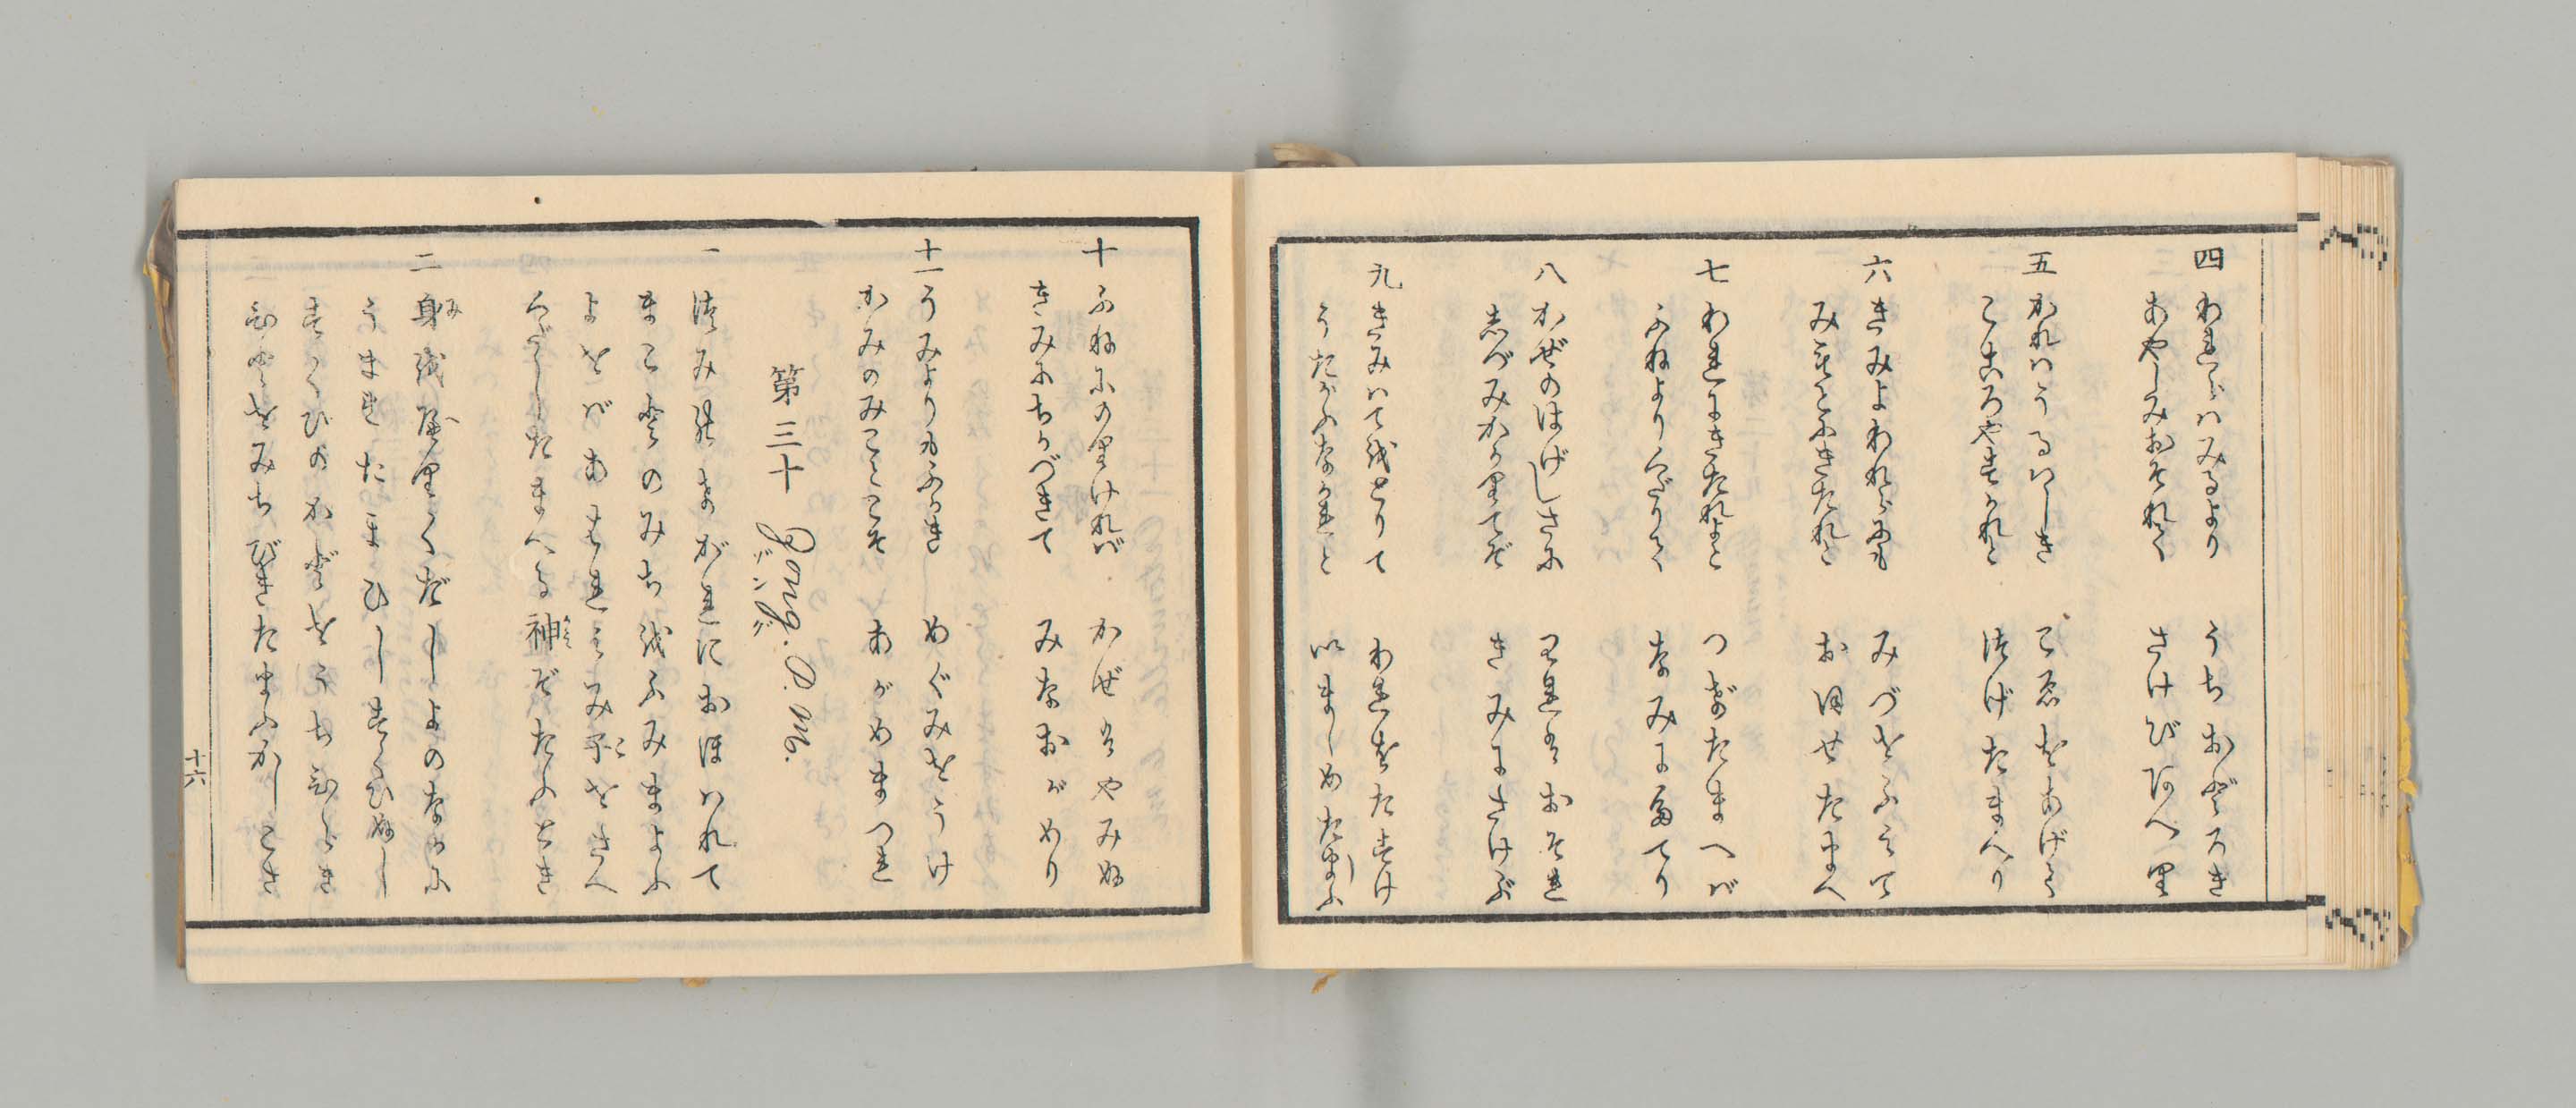 四 われらハみるより うちおどろき
あやしみおそれて さけびあへり
五 かれハうるハしき こゑをあげて
こころやすかれと つげたまへり
六 きみよわれらにも みづをふみて
みもとにきたれと おほせたまへ
七 われにきたれよと つげたまへば
ふねよりくだりて なみにたてり
八 かぜのはげしさに われハおそれ
しづみかかりてぞ きみにさけぶ
九 きみハてをとりて われをたすけ
うたがふなかれと いましめたまふ
十 ふねにのりければ かぜハやみぬ
きみにちかづきて みなおがめり
十一 うみよりもふかき めぐみをうけ
かみのみことこそ あがめまつれ
第三十 Gang. P. M.
ザング
一 つみのまがきにおほハれて
まことのみちをふみまよふ
よをばあはれミみ子をさへ
くだしたまへる神ぞたふとき
二 身をへりくだしよのなかに
うまれたまひしすくひぬし
すくひのかどをうちひらき
ひとをみちびきたまふかしこさ
十六